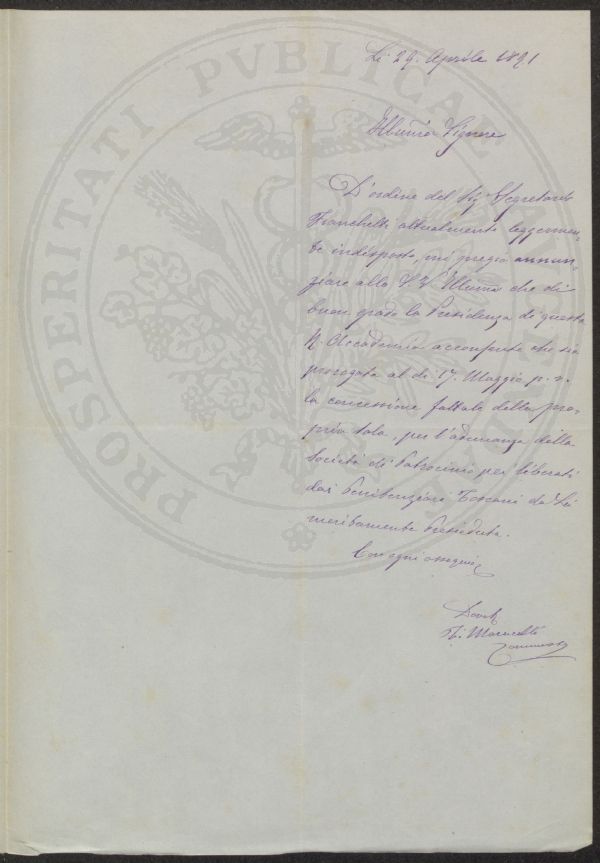 PROSPERITATI PVBLICAE AVGENDAE
Li 29. Aprile 1891
Illmo Signore
D'ordine del Sig Segretario
Franchetti attualmente leggermen-
te indisposto, mi pregio annun-
ziare alla S V Illma che di
buon grado la Presidenza di questa
R Accademia acconsente che sia
prorogata al dì 17. Maggio p. v.
la concessione fattale della pro-
pria Sala, per l'adunanza della
Società di Patrocinio pei liberati
dai Penitenziari Toscani da Lei
meritamente Presieduta.
Con ogni ossequio
Devot